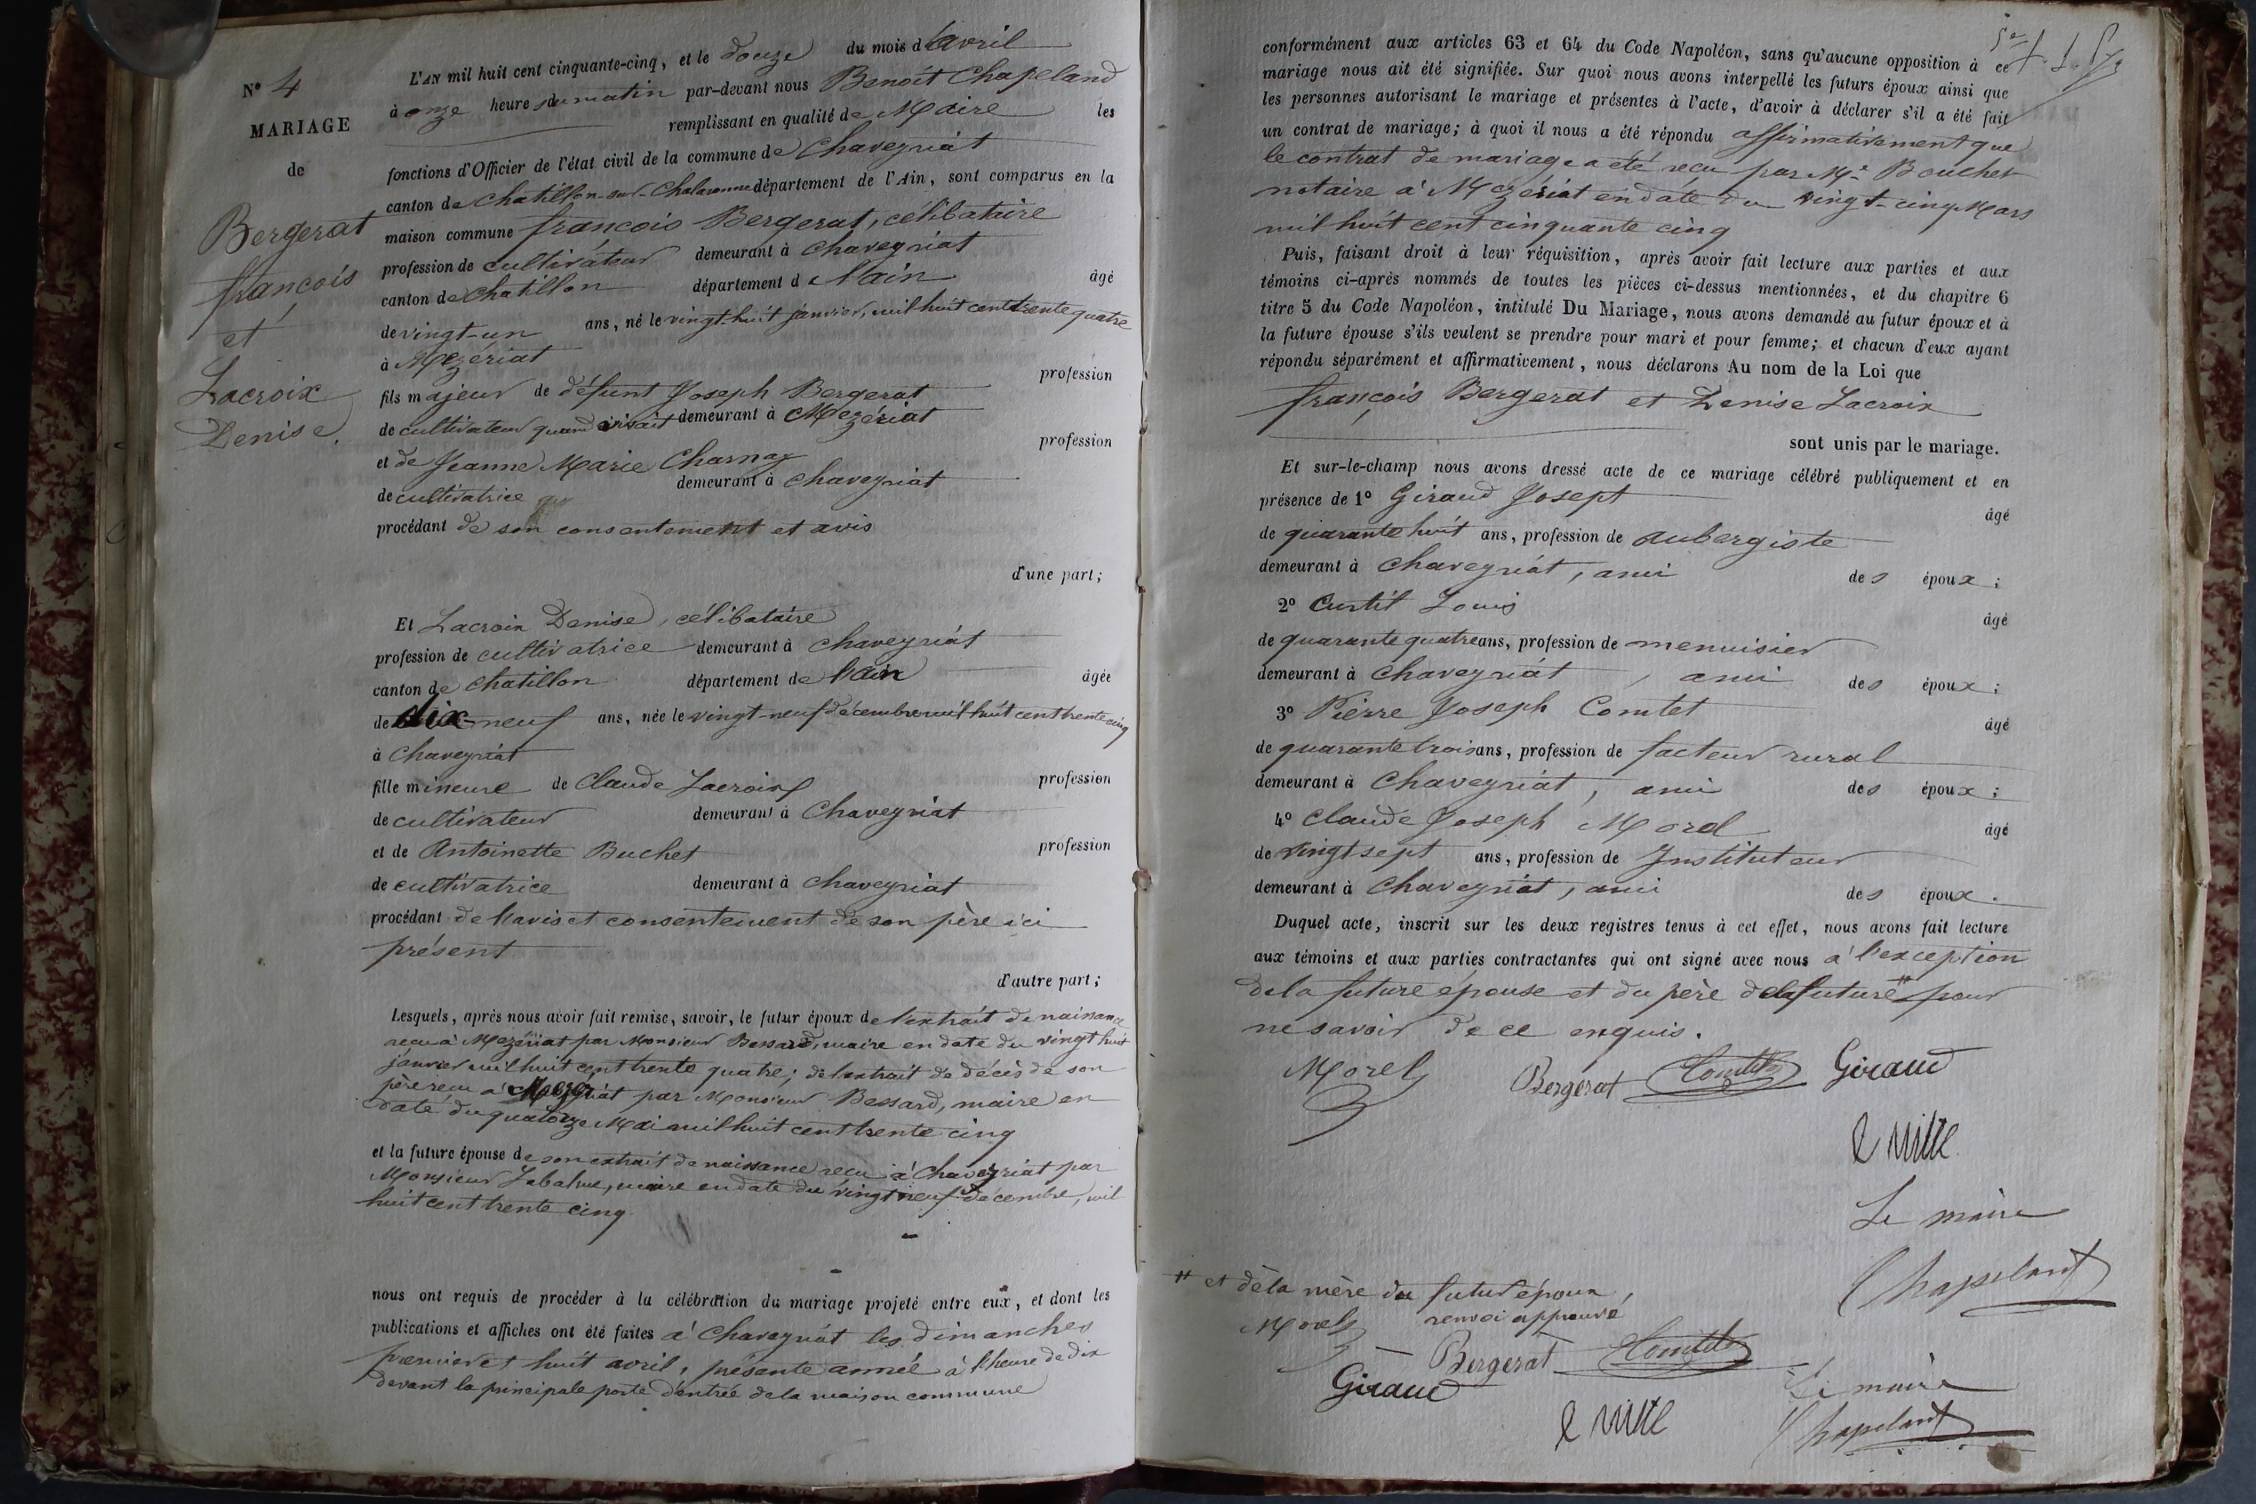 N° 4
MARIAGE
de
Bergerat
françois
et
Lacroix
Denise
L'AN mil huit cent cinquante-cinq, et le douze du mois d'avril
à onze heures du matin par-devant nous Benoit Chapeland
remplissant en qualité de Maire les
fonctions d'Officier de l'état civil de la commune de Chaveyriat
canton de Chatillon-sur-Chalaronne département de l'Ain, sont comparus en la
maison commune françois Bergerat, célibataire
profession de cultivateur demeurant à Chaveyriat
canton de Chatillon département d L'ain âgé
de vingt-un ans, né le vingt-huit janvier, mil huit cent trente quatre
à Mezériat
fils majeur de défunt Joseph Bergerat profession
de cultivateur quand vivait demeurant à Mezériat
et de Jeanne Marie Charnay profession
de cultivatrice demeurant à Chaveyriat
procédant de son consentement et avis
d'une part;
Et Lacroix Denise, célibataire
profession de cultivatrice demeurant à Chaveyriat
canton de Chatillon département de l'ain âgée
de dix-neuf ans, née le vingt-neuf décembre mil huit cent trente cinq
à Chaveyriat
fille mineure de Claude Lacroix profession
de cultivateur demeurant à Chaveyriat
et de Antoinette Buchet profession
de cultivatrice demeurant à Chaveyriat
procédant de l'avis et consentement de son père ici
présent
d'autre part;
Lesquels, après nous avoir fait remise, savoir, le futur époux de l'extrait de naissance
reçu à Mezériat par Monsieur Bessard, maire en date du vingt huit
janvier mil huit cent trente quatre; de l'extrait de décès de son
père reçu à Mezériat par Monsieur Bessard, maire en
date du quatorze Mai mil huit cent trente cinq
et la future épouse de son extrait de naissance reçu à Chaveyriat par
Monsieur maire en date du vingt neuf décembre, mil
huit cent trente cinq
nous ont requis de procéder à la célébration du mariage projeté entre eux, et dont les
publications et affiches ont été faites à Chaveyriat les dimanches
premier et huit avril, présente année à l'heure de dix
devant la principale porte d'entrée de la maison commune
conformément aux articles 63 et 64 du Code Napoléon, sans qu'aucune opposition à ce
mariage nous ait été signifiée. Sur quoi nous avons interpellé les futurs époux ainsi que
les personnes autorisant le mariage et présentes à l'acte, d'avoir à déclarer s'il a été fait
un contrat de mariage; à quoi il nous a été répondu affirmativement que
le contrat de mariage a été reçu par Me Boucher
notaire à Mezériat en date du vingt-cinq Mars
mil huit cent cinquante cinq
Puis, faisant droit à leur réquisition, après avoir fait lecture aux parties et aux
témoins ci-après nommés de toutes les pièces ci-dessus mentionnées, et du chapitre 6
titre 5 du Code Napoléon, intitulé Du Mariage, nous avons demandé au futur époux et à
la future épouse s'ils veulent se prendre pour mari et pour femme; et chacun d'eux ayant
répondu séparément et affirmativement, nous déclarons Au nom de la Loi que
françois Bergerat et Denise Lacroix
sont unis par le mariage.
Et sur-le-champ nous avons dressé acte de ce mariage célébré publiquement et en
présence de 1° Giraud Josept âgé
de quarante huit ans, profession de aubergiste
demeurant à Chaveyriat, ami des époux;
2° Curtil Louis âgé
de quarante quatre ans, profession de menuisier
demeurant à Chaveyriat, ami des époux;
3° Pierre Joseph Comtet âgé
de quarante trois ans, profession de facteur rural
demeurant à Chaveyriat, ami des époux;
4° Claude Joseph Morel âgé
de vingt sept ans, profession de Instituteur
demeurant à Chaveyriat, ami des époux.
Duquel acte, inscrit sur les deux registres tenus à cet effet, nous avons fait lecture
aux témoins et aux parties contractantes qui ont signé avec nous à l'exception
de la future épouse et du père de la future # pour
ne savoir de ce enquis.
Morel Bergerat Comtet Giraud
Le maire
Chapeland
# et de la mère du futur époux,
renvoi approuvé
Morel
Bergerat Comtet
Giraud
Le maire
Chapeland